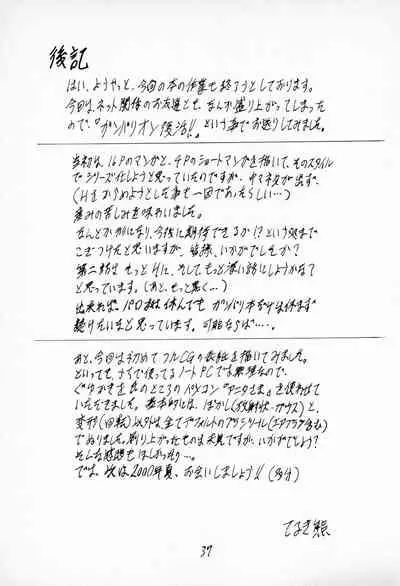 後記
はい、ようやっと、今回の本の作業も終ろうとしております。
今回は、ネット関係のお友達とも、なんか盛り上がってしまった
ので、『ガンバリオン復活!!』という事でお送りしてみました。
当初は、16Pのマンガと、4Pのショートマンガを描いて、そのスタイル
でシリーズ化しようと思っていたのですが、中々ネタが出ず、
(Hをからめようとした事も一因であったらしい…)
産みの苦しみを味わいました。
なんとか形になり、今後に期待できるか!?という処まで
こぎつけたと思いますが、皆様、いかがでしたか?
第二話は もっとHに、そして、もっと濃い話にしようかなて
と思っています。(あと、もっと黒く…)
出来れば、パロ本は休んでも ガンバリ本だけは休まず
続けたいなと思っています。可能ならば…。
あと、今回は初めて フルCGの表紙を描いてみました。
といっても、ナイで使ってるノートPCでは無理なので、
のところのパソコン『アニタさま』を使わせて
いただきました。基本的には、ぼかし(放射状・ガウス)と、
変形(回転)以外は、全てデフォルトのブラシツール(エアブラシ含む)
でぬりました。刷り上がったものは未見ですが、いかがでしょう?
そんな感想もほしかったり…。
では、次は2000年夏、お会いしましょう!!(多分)
てるき熊
37